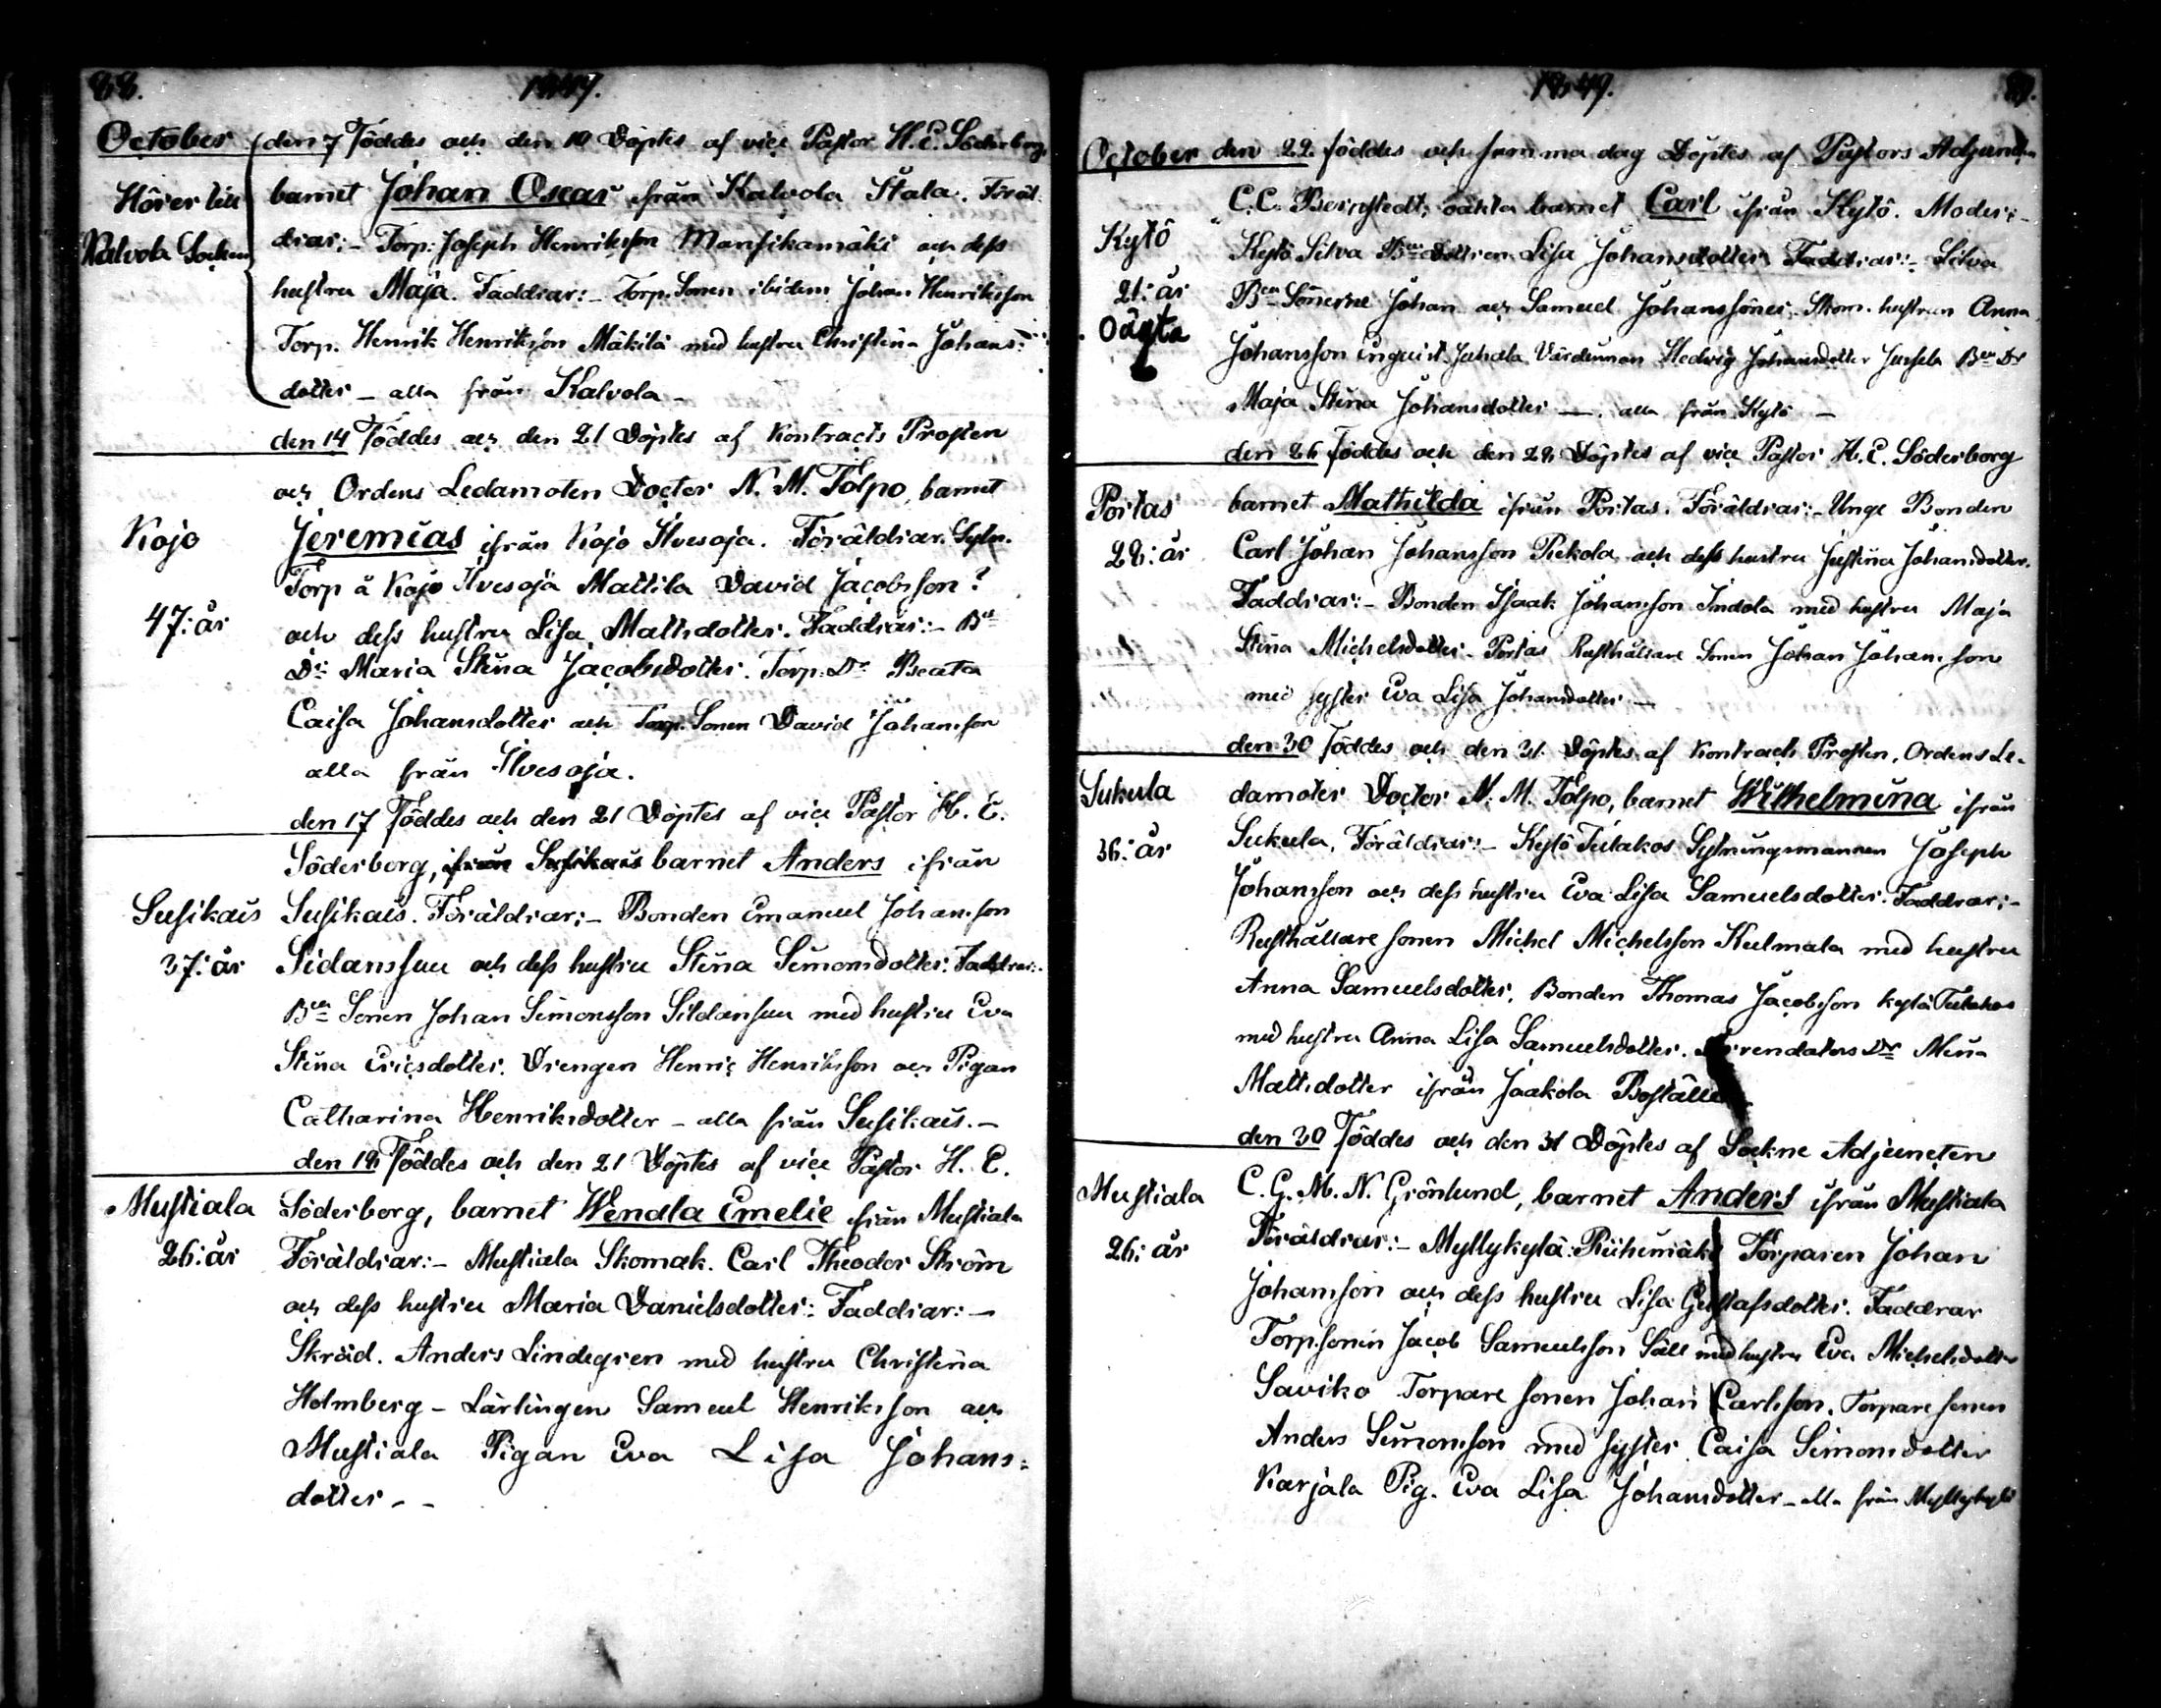 88.
1849.
October den 7 Föddes och den 10 Döptes af vice Pastor H. E. Söderborg,
Hörer till barnet Johan Oscar från Kalvola Stala. Föräl-
Kalvola Socken drar:- Torp. Joseph Henriksson Mansikamäki och dess
hustru Maja. Faddrar:- Torp. Sonen ibidem Johan Henriksson
Torp. Henrik Henriksson Mäkilä med hustru Christina Johans-
dotter - alla från Kalvola -
den 14 Föddes och den 21 Döptes af Kontracts Prosten
och Ordens Ledamoten Doctor N. M. Tolpo, barnet
Kojo Jeremias ifrån Kojo Ilvesoja. Föräldrar. Sytn.
Torp å Kojo Ilvesoja Mattila David Jacobsson?
47: år och dess hustru Lisa Mattsdotter. Faddrar:- Bde
Dr: Maria Stina Jacobsdotter. Torp. Dr Beata
Caisa Johansdotter och Torp. Sonen David Johansson
alla från Ilvesoja.
den 17 Föddes och den 21 Döptes af vice Pastor H. E.
Söderborg, ifrån Susikais barnet Anders ifrån
Susikais Susikais. Föräldrar:- Bonden Emanuel Johansson
37: år Sidansuu och dess hustru Stina Simonsdotter: Faddrar:-
Bde Sonen Johan Simonsson Sildansuu med hustru Eva
Stina Ericsdotter. Drengen Henric Henriksson och Pigan
Catharina Henriksdotter - alla från Susikais. -
den 18 Föddes och den 21 Döptes af vice Pastor H. E.
Mustiala Söderborg, barnet Wendla Emelie från Mustiala
26: år Föräldrar:- Mustiala Skomak. Carl Theodor Ström
och dess hustru Maria Danielsdotter: Faddrar:-
Skräd. Anders Lindegren med hustru Christina
Holmberg - Lärlingen Samuel Henriksson och
Mustiala Pigan Eva Lisa Johans-
dotter - -
1849.
89.
October den 22. föddes och samma dag Döptes af Pastors Adjuncten
C. C. Bergstedt, oäkta barnet Carl ifrån Kytö. Moder:-
Kytö Kytö Silva Bde Dottren Lisa Johansdotter Faddrar:- Silva
21: år Bde Sönerne Johan och Samuel Johanssöner. Skom. hustrun Anna
Oägta Johansson Juhala Värdinnan Hedwig Johansdotter Jussila Bde Dr
Maja Stina Johansdotter - alla från Kytö -
den 26 föddes och den 28 Döptes af vice Pastor H. E. Söderborg
Portas barnet Mathilda ifrån Portas. Föräldrar:- Unge Bonden
28: år Carl Johan Johansson Pekola och dess hustru Justina Johansdotter.
Faddrar:- Bonden Isaak Johansson Indola med hustru Maja
Stina Michelsdotter - Portas Rusthållare Sonen Johan Johansson
med syster Eva Lisa Johansdotter -
den 30 föddes och den 31 Döptes af Kontracts Prosten, Ordens Le-
Sukula damoten Doctor N. M. Tolpo, barnet Wilhelmina ifrån
36: år Sukula. Föräldrar:- Kytö Tutakos Sytningsmannen Joseph
Johansson och dess hustru Eva Lisa Samuelsdotter. Faddrar:-
Rusthållare sonen Michel Michelsson Kulmala med hustru
Anna Samuelsdotter, Bonden Thomas Jacobsson Kytö Tutakos
med hustru Anna Lisa Samuelsdotter. Arrendators Dr Mina
Mattsdotter ifrån Jaakola Boställe
den 30 Föddes och den 31 Döptes af Sockne Adjuncten
Mustiala C. G. M. N. Grönlund, barnet Anders ifrån Mustiala
26: år Föräldrar:- Myllykylä Riihimäki Torparen Johan
Johansson och dess hustru Lisa Gustafsdotter. Faddrar
Torpsonen Jacob Samuelsson Säll med hustru Eva Michelsdotter
Saviko Torpare sonen Johan Carlsson. Torpare sonen
Anders Simonsson med syster Caisa Simonsdotter
Karjala Pig. Eva Lisa Johansdotter - alla från Myllykylä